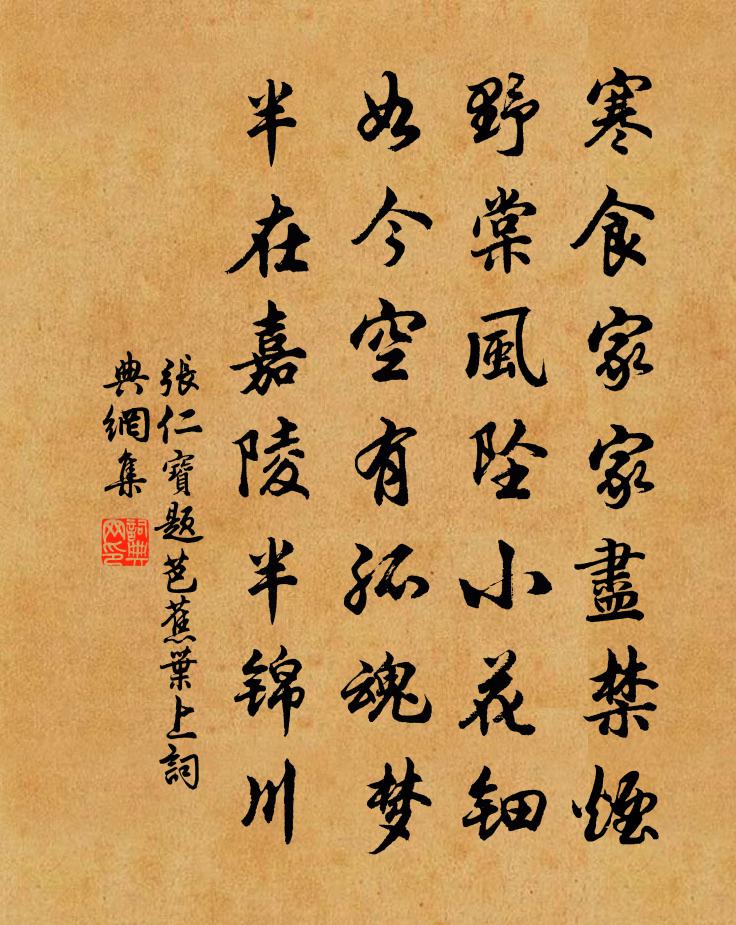 寒食家家盡禁煙
野棠風墜小花钿
如今空有孤魂梦
半在嘉陵半锦川
張仁寶題芭蕉葉上詞
典網集
詞典
网印